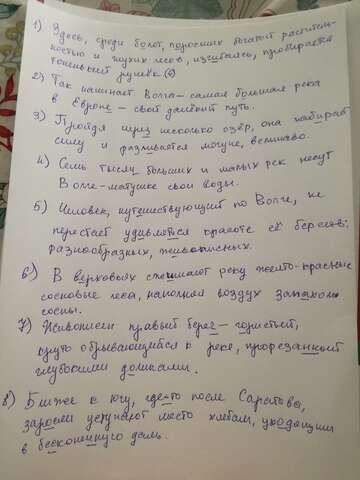 1) Здесь, среди болот, поросших богатой раститель-
ностью и глухих лесов, изгибаясь, пробирается
тоненький ручеёк.
2) Так начинает Волга – самая большая река
в Европе – свой далёкий путь.
3) Пройдя через несколько озёр, она набирает
силу и разливается могуче, величаво.
4) Семь тысяч больших и малых рек несут
Волге-матушке свои воды.
5) Человек, путешествующий по Волге, не
перестаёт удивляться красоте её берегов:
разнообразных, живописных.
6) В верховьях стесняют реку желто-красные
сосновые леса, наполняя воздух запахом
сосны.
7) Живописен правый берег – гористый,
круто обрывающийся к реке, прорезанный
глубокими долинами.
8) Ближе к югу, где-то после Саратова,
заросли уступают место хлебам, уходящим
в бесконечную даль.